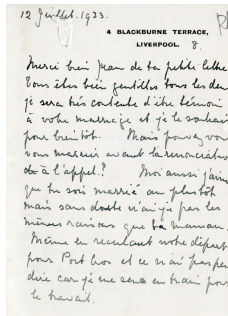 12 Juillet. 1933.
4 BLACKBURNE TERRACE,
LIVERPOOL. 8.
Merci bien Jean de ta petite lettre
Vous êtes bien gentilles tous les deux
je sera très contente d'être témoin
à votre marriage et je le souhaite
pour bientôt. Mais pouvez vous
vous marier avant la
à l'appel? Moi aussi j'aime
que tu sois marrié au plustôt
mais sans doute n'ai je pas les
mêmes raisons que ta maman.
Même en reculant notre départ
pour Port Cros et ce n'ai pas peu
dire car je me sens en train pour
le travail.